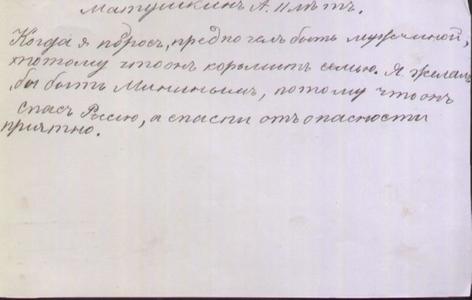 Матушкинъ А. 11 лѣтъ.
Когда я подросъ, предпочелъ быть мужчиной,
потому что онъ кормитъ семью. Я желалъ
бы быть Мининымъ, потому что онъ
спасъ Россію, а спасти отъ опасности
приятно.